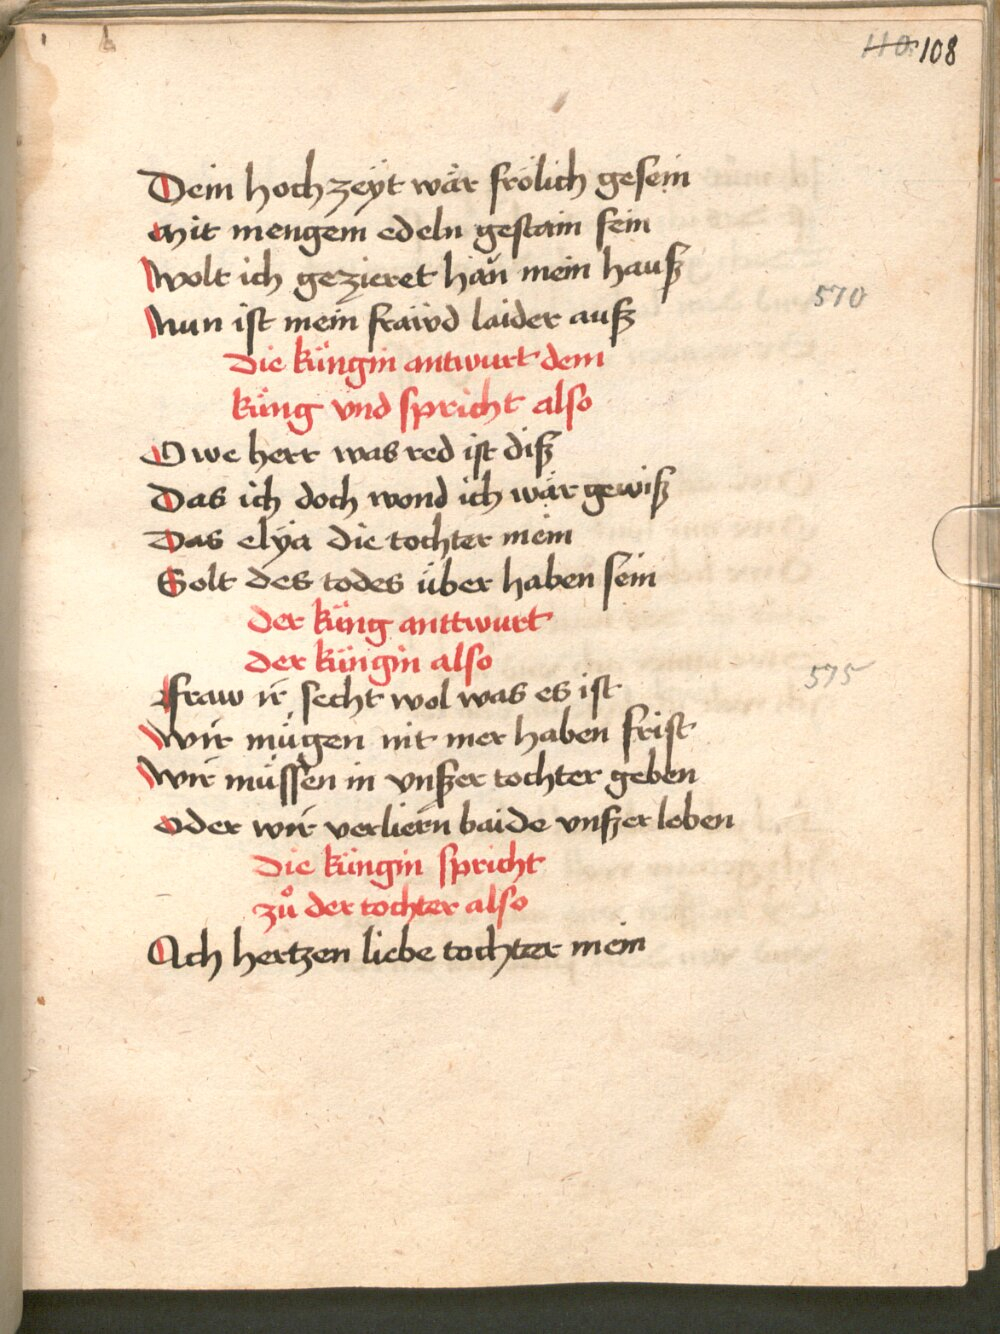 110. 108
Dein hochzeÿt wär frölich gesein
Mit mengem edeln gestain fein
Wolt ich gezieret hän mein hauß
570
Nun ist mein fraiwd laider auß
Die küngin antwurt dem
küng vnd spricht also
Owe herr was red ist diß
Das ich doch wond ich wär gewiß
Das elÿa die tochter mein
Solt des todes über haben sein
der küng anttwurt
der küngin also
575
Fraw ir secht wol was es ist
Wir mügen nit mer haben frist
Wir müssen in vnßer tochter geben
Oder wir verliern baide vnßer leben
Die küngin spricht
zů der tochter also
Ach hertzen liebe tochter mein